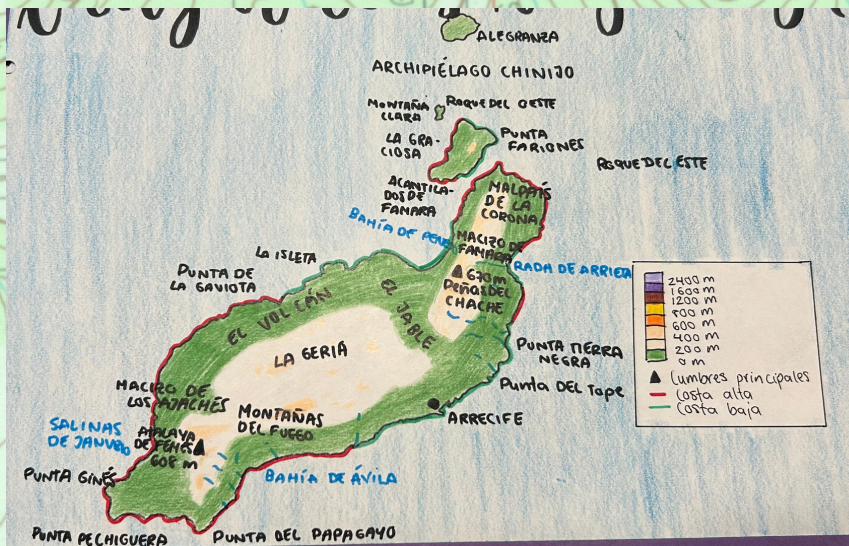 ALEGRANZA
ARCHIPIÉLAGO CHINIJO
MONTAÑA
CLARA
ROQUE DEL OESTE
LA GRA-
CIOSA
PUNTA
FARIONES
ROQUE DEL ESTE
ACANTILA-
DOS DE
FAMARA
MALPAÍS
DE LA
CORONA
BAHÍA DE PENE
MACIZO DE
FAMARA
RADA DE ARRIETA
LA ISLETA
PUNTA DE
LA GAVIOTA
670 m
PEÑAS DEL
CHACHE
EL VOLCÁN
EL JABLE
LA GERIÁ
PUNTA TIERRA
NEGRA
PUNTA DEL TOPE
MACIZO DE
LOS AJACHES
MONTAÑAS
DEL FUEGO
ARRECIFE
SALINAS
DE JANUBIO
ATALAYA
DE FEMES
608 m
PUNTA GINÉS
BAHÍA DE ÁVILA
PUNTA PECHIGUERA
PUNTA DEL PAPAGAYO
2400 m
1600 m
1200 m
800 m
600 m
400 m
200 m
0 m
Cumbres principales
Costa alta
Costa baja